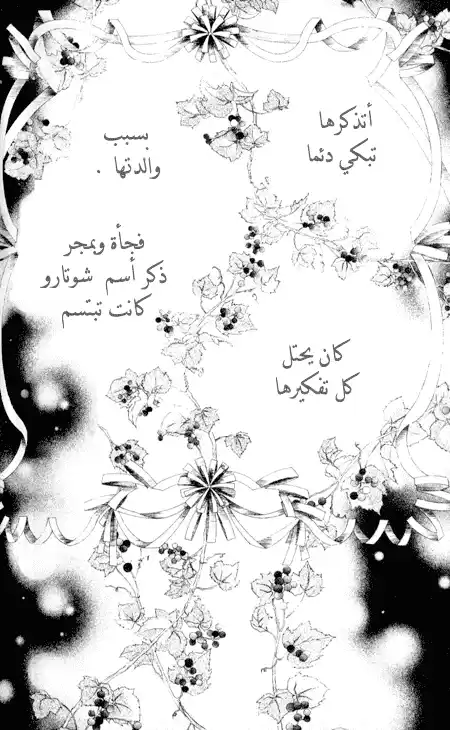 أتذكرها
تبكي دئما
بسبب
والدتها .
فجأة وبمجر
ذكر أسم شوتارو
كانت تبتسم
كان يحتل
كل تفكيرها